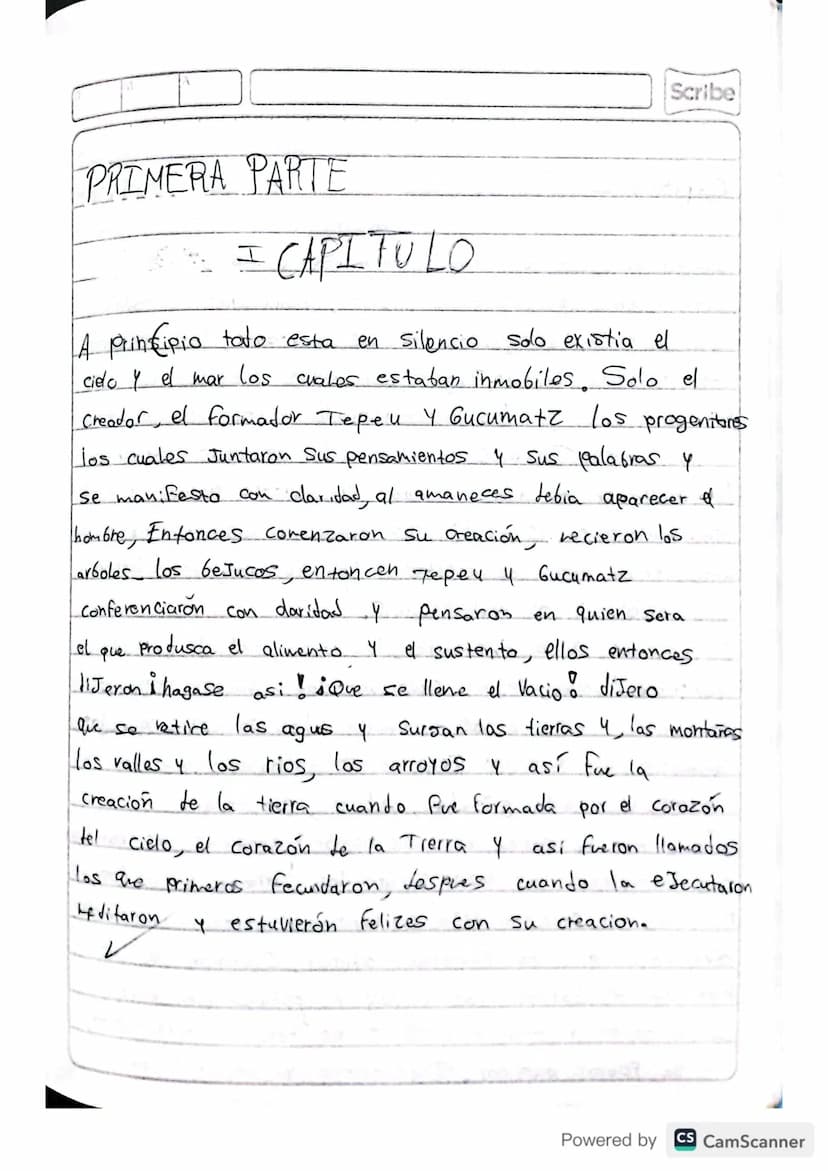 Scribe
PRIMERA PARTE
I CAPITULO
A principio todo esta en silencio solo existia el
cielo y el mar los cuales estaban inmobiles. Solo el
creador, el formador Tepeu y Gucumatz los progenitores
los cuales Juntaron sus pensamientos y sus palabras y
se manifesto con claridad, al amaneces debia aparecer el
hombre, Entonces comenzaron su creación, recieron los
arboles los beJucos, entoncen Tepeu y Gucumatz
conferenciarón con claridad y pensaron en quien sera
el que produsca el alimento y el sustento, ellos entonces
diJeron ¡hagase asi! ¡Que se llene el Vacio! diJero
que se retire las agus y Surgan las tierras y, las montañas
los valles y los rios, los arroyos y así fue la
creación de la tierra cuando fue formada por el corazón
del cielo, el corazón de la Tierra y así fueron llamados
los que primeros fecundaron, despues cuando la eJecutaron
Meditaron y estuvierón felizes con su creacion.
Powered by CS CamScanner